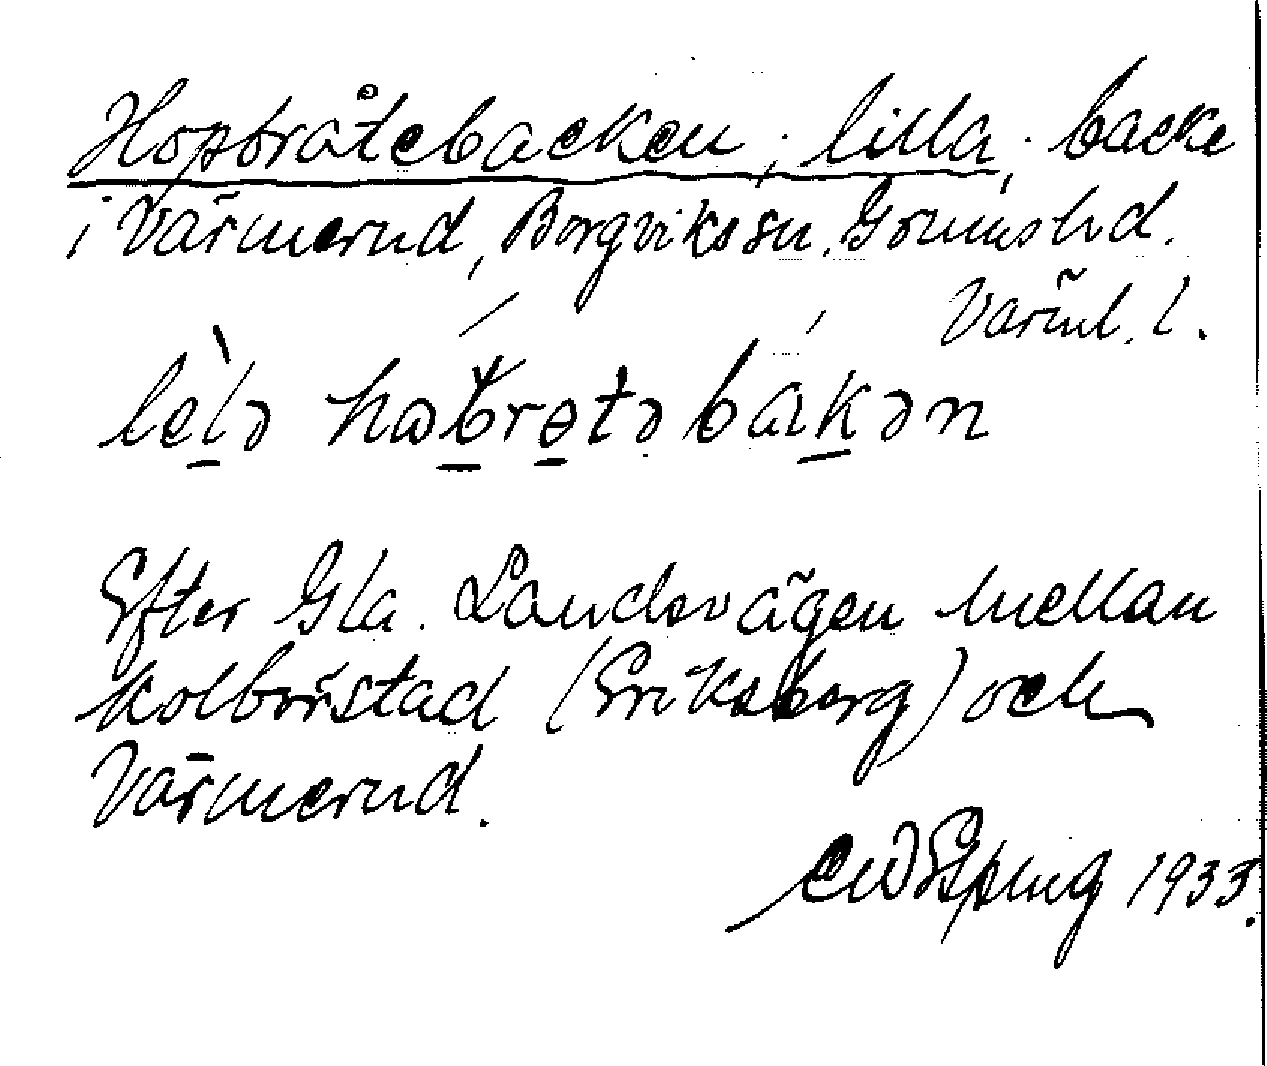 Hopbråtebacken, lilla, backe
i Värmerud, Borgviks sn. Grums hd.
Värml. l.
lelə habrɵtə bakən
Efter Gla. Landsvägen mellan
Kolbörstad (Eriksberg) och
Värmerud.
CWEsping 1933.